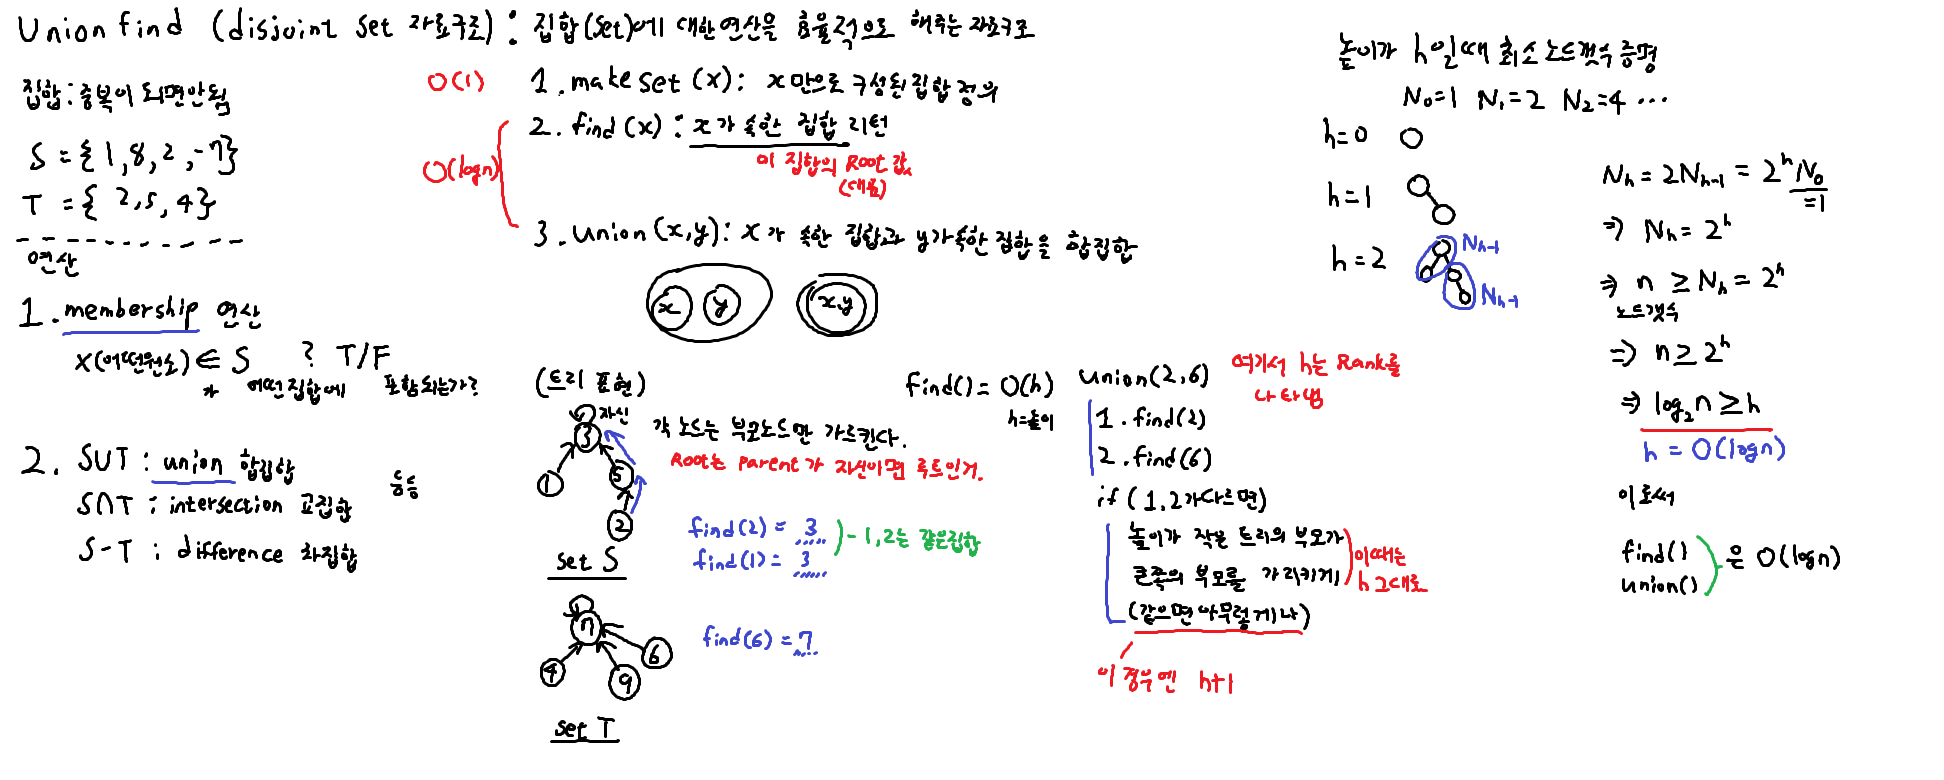 Union find (disjoint set 자료구조) : 집합(set)에 대한 연산을 효율적으로 해주는 자료구조
집합 : 중복이 되면안됨
S = {1, 8, 2, -7}
T = { 2, 5, 4}
연산
1. membership 연산
x(어떤원소) ∈ S ? T/F
가 어떤집합에 포함되는가?
2. S∪T : union 합집합
S∩T : intersection 교집합
S-T : difference 차집합
등등
O(1)
1. make set (x) : x 만으로 구성된 집합 정의
O(logn)
2. find (x) : x가 속한 집합 리턴
이 집합의 Root 값
(대표)
3. union (x,y) : x가 속한 집합과 y가속한 집합을 합집합
x y
x,y
(트리 표현)
자신
3
1
5
2
set S
각 노드는 부모노드만 가르킨다.
Root는 parent가 자신이면 루트인거.
find(2) = 3
find(1) = 3
- 1,2는 같은집합
7
4
9
6
set T
find(6) = 7
find() = O(h)
h=높이
union(2,6)
여기서 h는 Rank를
나타냄
1. find(2)
2. find(6)
if (1,2가다르면)
높이가 작은 트리의 부모가
큰쪽의 부모를 가리키게
(같으면 아무렇게나)
이때는
h 그대로
이 경우엔 h+1
높이가 h일때 최소 노드갯수 증명
N₀=1 N₁=2 N₂=4 ...
h=0
h=1
h=2
Nh-1
Nh-1
Nh = 2Nh-1 = 2^h N₀
=1
⇒ Nh = 2^h
⇒ n ≥ Nh = 2^h
노드갯수
⇒ n ≥ 2^h
⇒ log₂n ≥ h
h = O(logn)
이로써
find()
union()
은 O(logn)